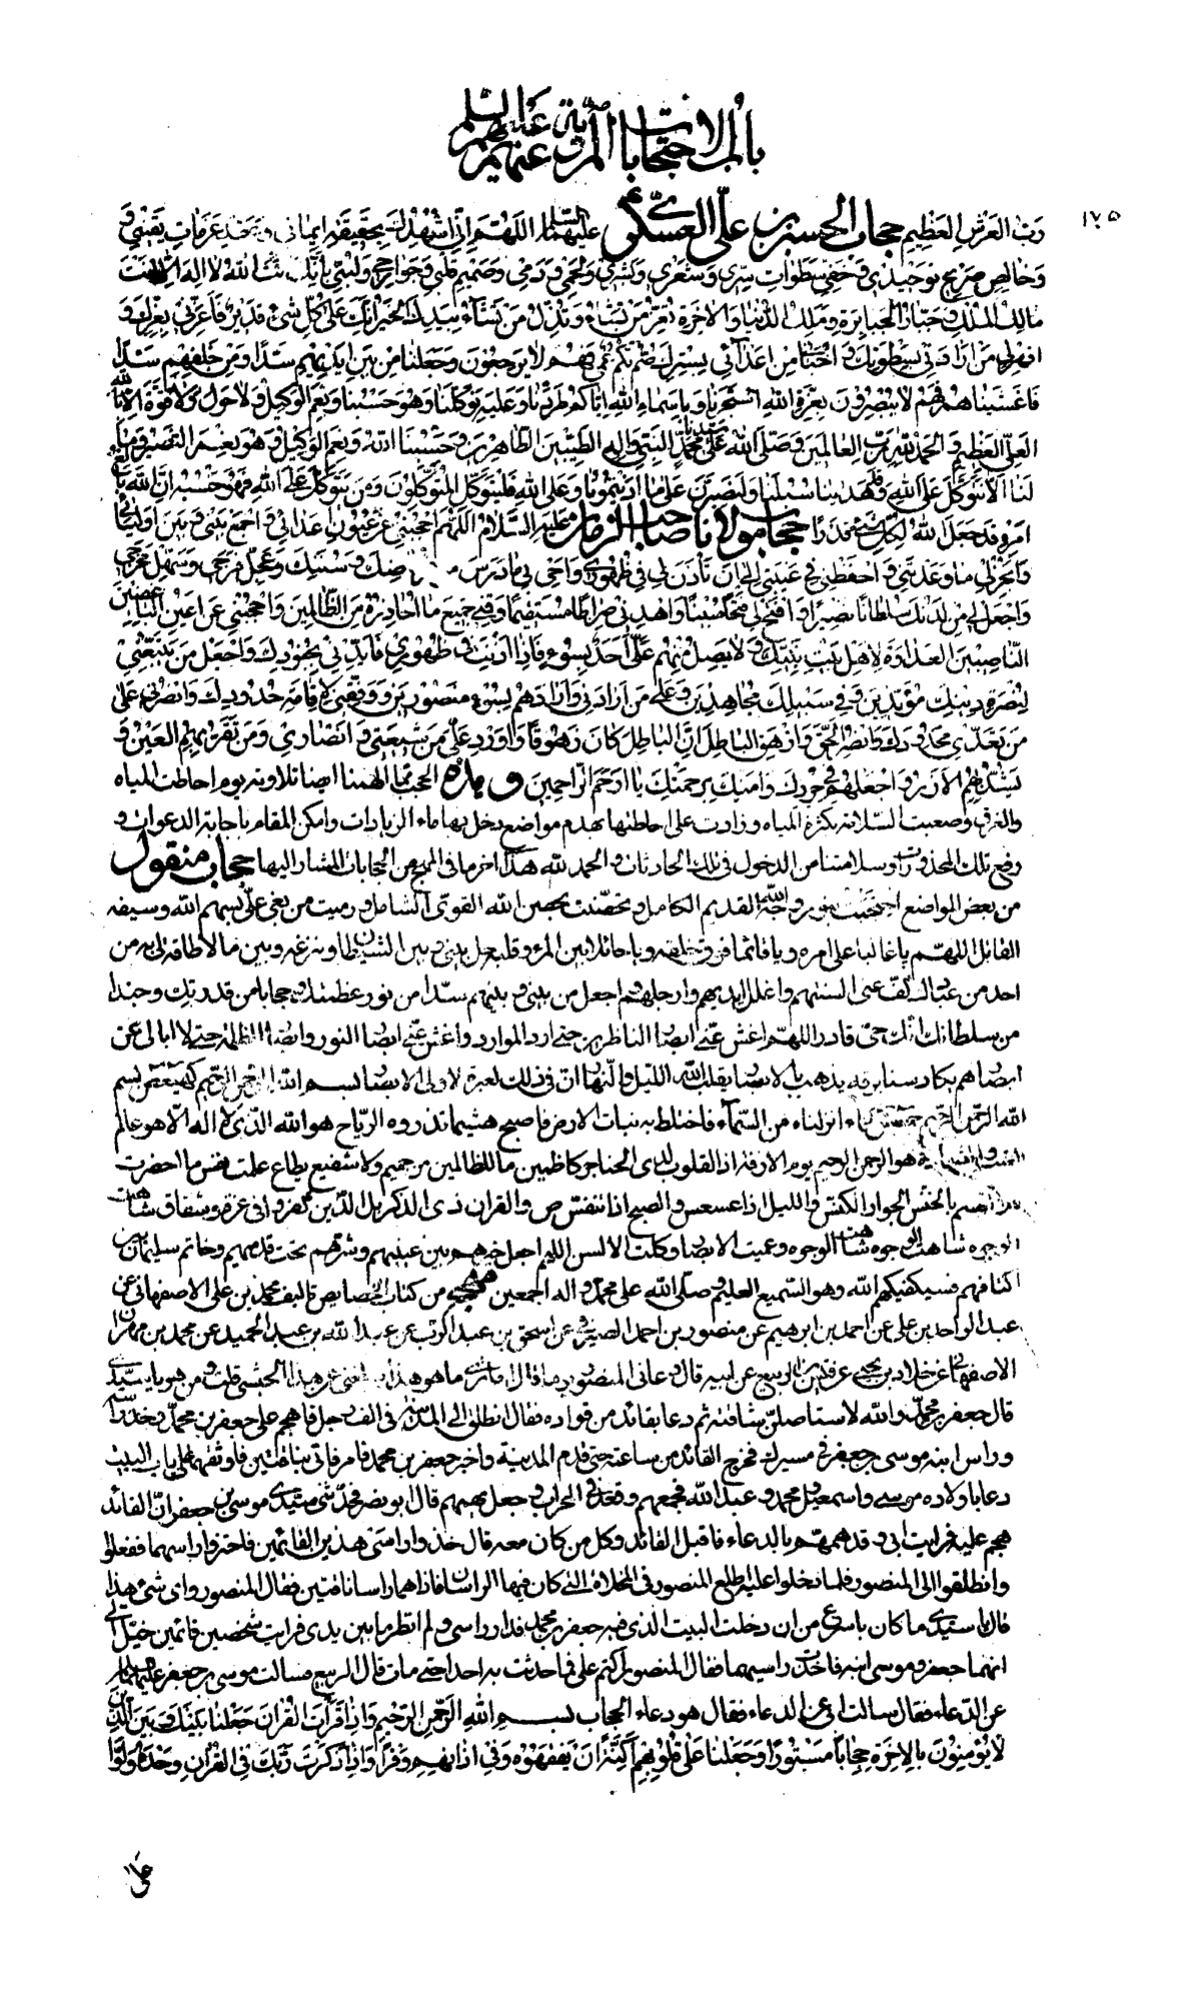 باب الاحتجابات المروية عنهم عليهم السلم
١٧٥
رَبّ العَرْشِ العَظِيمِ حجاب الحسن بن علي العسكري عليهما السّلم اللّهُمَّ اِنّي اُشْهِدُكَ بِحَقيقَةِ ايمانى وَعَقْدِ عَزَماتِ يَقيني وَ
وَخالِصِ صَريحِ تَوحيدي وَخَفِيِّ سَطَواتِ سِرّي وَشَعْري وَبَشَري وَلَحْمي وَدَمي وَصَميمِ قَلْبي وَجَوارِحي وَلُبّي بِاَنَّكَ اَنْتَ اللهُ لا اِلهَ اِلّا اَنْتَ
مالِكُ المُلْكِ وَجَبّارُ الجَبابِرَةِ وَمَلِكُ الدُّنيا وَالاخِرَةِ تُعِزُّ مَنْ تَشاءُ وَتُذِلُّ مَنْ تَشاءُ بِيَدِكَ الخَيْرُ اِنَّكَ عَلى كُلِّ شَيْءٍ قَديرٌ فَاَعِزَّني بِعِزِّكَ وَ
اقْهَرْ لي مَنْ اَرادَني بِسَطْوَتِكَ وَ اَعْدائي بِسِتْرِكَ صُمٌّ بُكْمٌ عُمْيٌ فَهُمْ لا يَرْجِعُونَ وَجَعَلْنا مِنْ بَيْنِ اَيْديهِمْ سَدًّا وَمِنْ خَلْفِهِمْ سَدًّا
فَاَغْشَيْناهُمْ فَهُمْ لا يُبْصِرُونَ بِعِزَّةِ اللهِ اسْتَجَرْنا وَبِاَسْماءِ اللهِ اِيّاكُمْ طَرَدْنا وَعَلَيْهِ تَوَكَّلْنا وَهُوَ حَسْبُنا وَنِعْمَ الوَكيلُ وَلا حَوْلَ وَلا قُوَّةَ اِلّا بِاللهِ
العَلِيِّ العَظيمِ وَ الحَمْدُ للهِ رَبِّ العالَمينَ وَصَلَّى اللهُ عَلى سَيّدِنا مُحَمَّدٍ النَّبِيِّ وَالِهِ الطَّيِّبينَ الطّاهِرينَ وَحَسْبُنَا اللهُ وَنِعْمَ الوَكيلُ وَهُوَ نِعْمَ المَوْلى وَنِعْمَ النَّصيرُ وَما
لَنا اَلّا نَتَوَكَّلَ عَلَى اللهِ وَقَدْ هَدينا سُبُلَنا وَلَنَصْبِرَنَّ عَلى ما اذَيْتُمُونا وَعَلَى اللهِ فَلْيَتَوَكَّلِ المُتَوَكِّلُونَ وَمَنْ يَتَوَكَّلْ عَلَى اللهِ فَهُوَ حَسْبُهُ اِنَّ اللهَ بالِغُ
اَمْرِهِ قَدْ جَعَلَ اللهُ لِكُلِّ شَيْءٍ قَدْرًا حجاب مولانا صاحب الزمان عليه السلام اللّهُمَّ احْجُبْني عَنْ عُيُونِ اَعْدائي وَ اجْمَعْ بَيْني وَ بَيْنَ اَوْلِيائي
وَاَنْجِزْ لي ما وَعَدْتَني وَ احْفَظْني في غَيْبَتي اِلى اَنْ تَأْذَنَ لي في ظُهُوري وَاَحْيِ بي ما دَرَسَ مِنْ فَرْضِكَ وَ سُنَنِكَ وَعَجِّلْ فَرَجي وَسَهِّلْ مَخْرَجي
وَاجْعَلْ لي مِنْ لَدُنْكَ سُلْطانًا نَصيرًا وَ افْتَحْ لي فَتْحًا مُبينًا وَاهْدِني صِراطًا مُسْتَقيمًا وَقِني جَميعَ ما اُحاذِرُهُ مِنَ الظّالِمينَ وَاحْجُبْني عَنْ اَعْيُنِ الباغِضينَ
النّاصِبينَ العَداوَةَ لِاَهْلِ بَيْتِ نَبِيِّكَ وَ لا يَصِلْ مِنْهُمْ عَلَيَّ اَحَدٌ بِسُوءٍ فَاِذا اَذِنْتَ في ظُهُوري فَاَيِّدْني بِجُنُودِكَ وَاجْعَلْ مَنْ يَتْبَعُني
لِنُصْرَةِ دينِكَ مُؤَيَّدينَ وَ في سَبيلِكَ مُجاهِدينَ وَ عَلى مَنْ اَرادَني وَاَرادَهُمْ بِسُوءٍ مَنْصُورينَ وَ وَفِّقْني لِاِقامَةِ حُدُودِكَ وَانْصُرْني عَلى
مَنْ تَعَدّى مَحارِدَكَ وَانْصُرِ الحَقَّ وَ اَزْهِقِ الباطِلَ اِنَّ الباطِلَ كانَ زَهُوقًا وَ اَوْرِدْ عَلَيَّ مِنْ شيعَتي وَ اَنْصاري وَمَنْ تَقَرُّ بِهِمُ العَيْنُ وَ
يُشَدُّ بِهِمُ الاَزْرُ وَ اجْعَلْهُمْ في حِرْزِكَ وَ اَمْنِكَ بِرَحْمَتِكَ يا اَرْحَمَ الرّاحِمينَ الحجب مما الهمنا ايضا تلاوته يوم احاطت المياه
والغرق وصعبت السلامة بكثرة المياه وزادت على احاطتها بهدم مواضع دخل بها ماء الزيادات وامكن المقام باجابة الدعوات و
دفع تلك المحذورات وسلامتنا من الدخول في تلك الحادثات و الحمد لله هذا اخر ما في المهج من الحجابات المشار اليها حجاب منقول
من بعض المواضع احتجبت بنور وجه الله القديم الكامل وتحصّنت بحصن الله القوي الشامل ورميت من بغى علىّ بسهم الله وسيفه
القاتل اللهمّ يا غالبا على امره ويا قائما فوق خلقه ويا حائلا بين المرء وقلبه حل بيني وبين الشيطان ونزغه وبين ما لا طاقة لي به من
احد من عبادك كفّ عنى السنتهم واغلل ايديهم وارجلهم واجعل من بيني وبينهم سدّا من نور عظمتك وحجابا من قدرتك وجندا
من سلطانك انك حىّ قادر اللهم اغش عنّي ابصار الناظرين حتى ارد الموارد واغش عنّي ابصار النور وابصار الظلمة حتى لا ابالى عن
ابصارهم يكاد سنا برقه يذهب بالابصار يقلب الله الليل والنهار ان في ذلك لعبرة لاولى الابصار بسم الله الرحمن الرحيم كهيعص بسم
الله الرحمن الرحيم حمعسق كماء انزلناه من السمآء فاختلط به نبات الارض فاصبح هشيما تذروه الرياح هو الله الذي لا اله الا هو عالم
الغيب والشهادة هو الرحمن الرحيم يوم الازفة اذ القلوب لدى الحناجر كاظمين ما للظالمين من حميم ولا شفيع يطاع علمت نفس ما احضرت
فلا اقسم بالخنس الجوار الكنس والليل اذا عسعس والصبح اذا تنفس ص والقران ذى الذكر بل الذين كفروا في عزة وشقاق شاهت
الوجوه شاهت الوجوه شاهت الوجوه وعميت الابصار وكلت الالسن اللهم اجعل خيرهم بين عينيهم وشرهم تحت قدميهم وخاتم سليمان بين
اكتافهم فسيكفيكهم الله وهو السميع العليم وصلى الله على محمد و اله اجمعين من كتاب الخصايص تاليف محمد بن على الاصفهاني عن
عبد الواحد بن على عن احمد بن ابرهيم عن منصور بن احمد الصيرفي عن اسحق بن عبد الرّب عن عبد الله بن عبد الحميد عن محمد بن مهران
الاصفهاني عن خلاد بن يحيى عن قيس بن الربيع عن ابيه قال دعانى المنصور يوما قال اما ترى ما هو هذا يبلغنى عن هذا الحبشي قلت و من هو يا سيّدي
قال جعفر بن محمد والله لاستاصلنّ شافته ثم دعا بقائد من قواده فقال انطلق الى المدينة في الف رجل فاهجم على جعفر بن محمد وخذ راسه
وراس ابنه موسى بن جعفر في مسيرك فخرج القائد من ساعته حتى قدم المدينة واخبر جعفر بن محمد فامر فاتى بناقتين فاوثقهما على باب البيت
ودعا باولاده موسى واسمعيل ومحمد و عبد الله فجمعهم وقعد في المحراب وجعل يهمهم قال ابو نصر فحدّثني سيّدي موسى بن جعفر ان القائد
هجم عليه فرايت ابي وقد همهم بالدعاء فاقبل القائد وكل من كان معه قال خذوا راسي هذين القائمين فاحتزوا راسهما ففعلوا
وانطلقوا الى المنصور فلما دخلوا عليه اطلع المنصور في المخلاة التي كان فيها الراسان فاذا هما راسا ناقتين فقال المنصور واى شيء هذا
قال يا سيّدي ما كان باسرع من ان دخلت البيت الذي فيه جعفر بن محمد فدار راسي ولم انظر ما بين يدى فرايت شخصين قائمين خيّل الي
انهما جعفر وموسى ابنه فاخذت راسيهما فقال المنصور اكتم علىّ فما حدثت به احدا حتى مات قال الربيع فسالت موسى بن جعفر عليهما السلام
عن الدعاء فقال سالت ابي عن الدعاء فقال هو دعاء الحجاب بسم اللهِ الرَّحمنِ الرَّحيمِ وَاِذا قَرَأْتَ القُرانَ جَعَلْنا بَيْنَكَ وَبَيْنَ الَّذينَ
لا يُؤْمِنُونَ بِالاخِرَةِ حِجابًا مَسْتُورًا وَجَعَلْنا عَلى قُلُوبِهِمْ اَكِنَّةً اَنْ يَفْقَهُوهُ وَفي اذانِهِمْ وَقْرًا وَاِذا ذَكَرْتَ رَبَّكَ فِي القُرانِ وَحْدَهُ وَلَّوْا
على